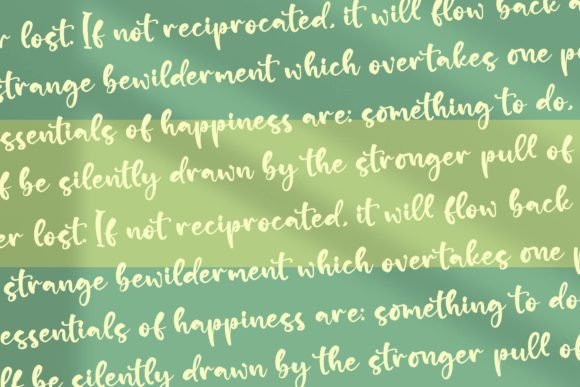 er lost. If not reciprocated, it will flow back a
strange bewilderment which overtakes one p
essentials of happiness are: something to do,
lf be silently drawn by the stronger pull of
er lost. If not reciprocated, it will flow back
strange bewilderment which overtakes one p
essentials of happiness are: something to do
lf be silently drawn by the stronger pull of